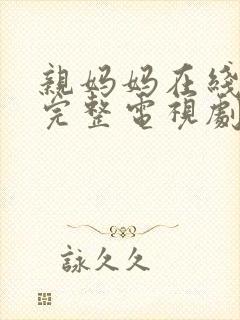 親妈妈在綫
完整電視劇
詠久久